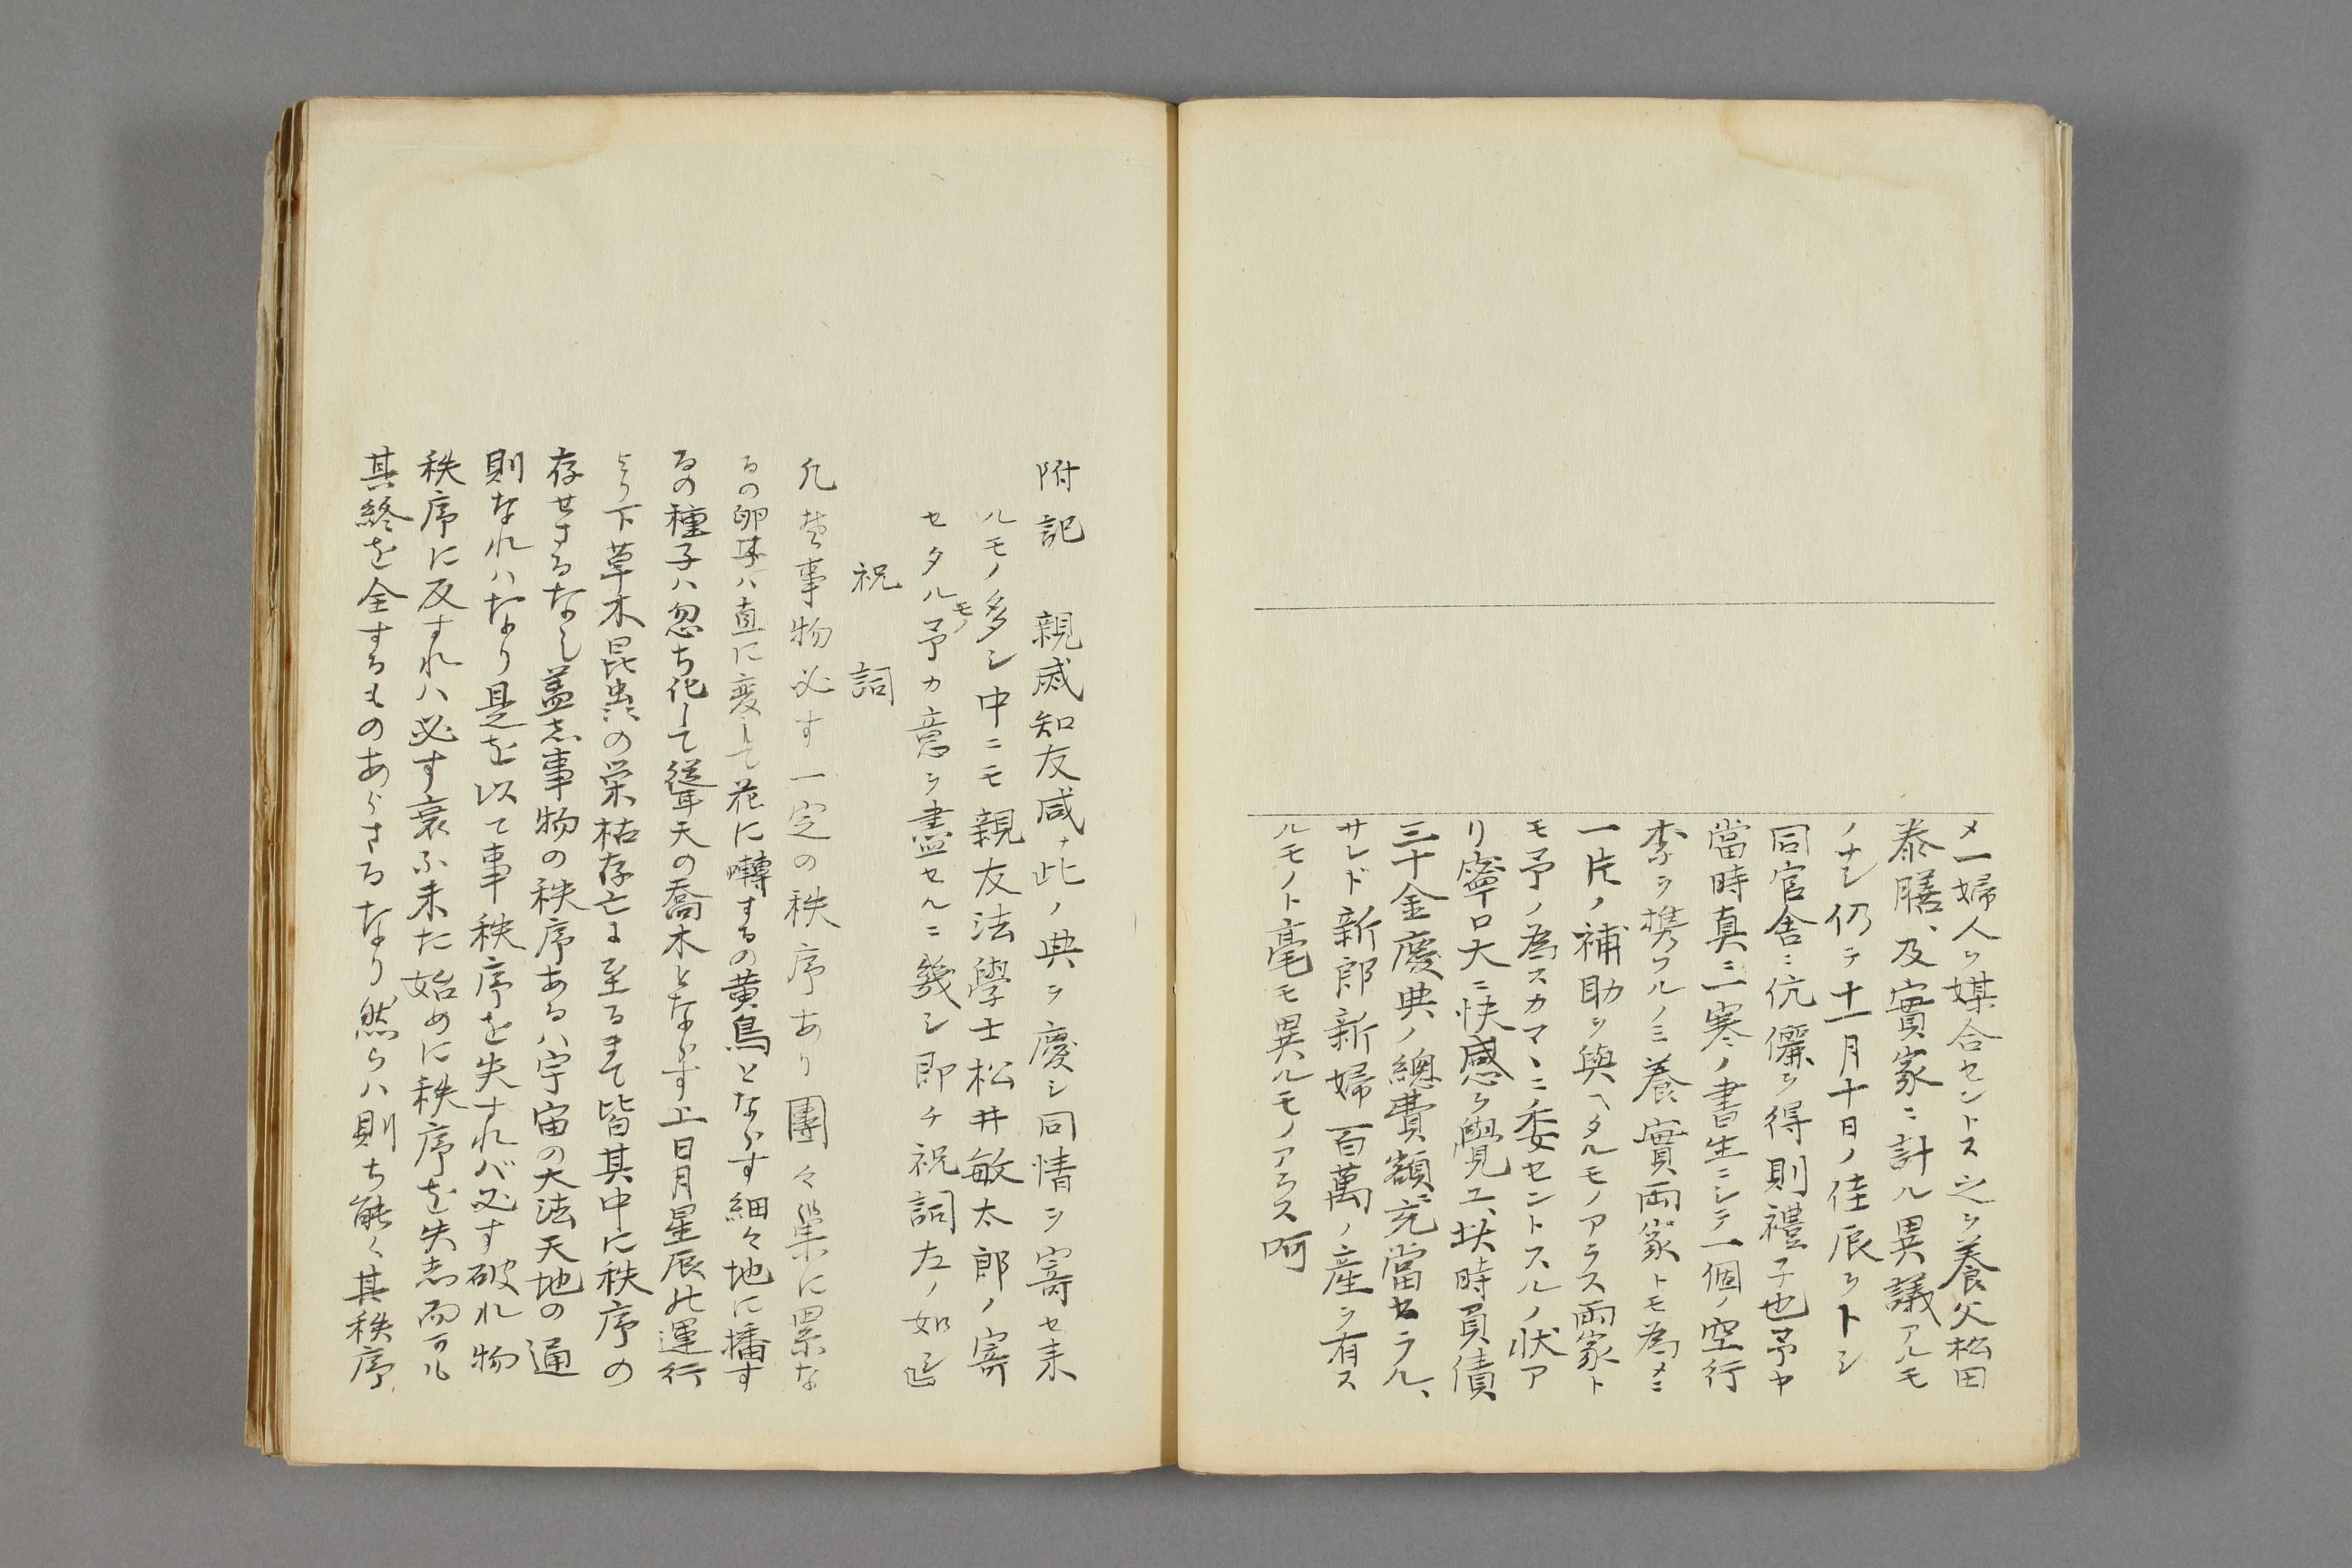 メ一婦人ヲ媒合セントス之ヲ養父松田
泰膳、及實家ニ計ル異議アルモ
ノナシ仍テ十一月十日ノ佳辰ヲトシ
同官舎ニ伉儷ヲ得則禮子也予ヤ
當時真ニ一寒ノ書生ニシテ一個ノ空行
李ヲ携フルノミ養實両家トモ為メニ
一片ノ補助ヲ與ヘタルモノアラス両家ト
モ予ノ為スカマヽニ委セントスルノ状ア
リ寧ロ大ニ快感ヲ覺ユ、此時負債
三十金慶典ノ總費額ニ充當セラル、
サレド新郎新婦百萬ノ産ヲ有ス
ルモノト毫モ異ルモノアラス呵
附記 親戚知友咸ナ此ノ典ヲ慶シ同情ヲ寄セ来
ルモノ多シ中ニモ親友法學士松井敏太郎ノ寄
セタルモノ予カ意ヲ盡セルニ幾シ即チ祝詞左ノ如シ
祝詞
凡そ事物必す一定の秩序あり團々巣に累な
るの卵子ハ直に変して花に囀するの黄鳥とならす細々地に播す
るの種子ハ忽ち化して聳天の喬木とならす上日月星辰の運行
より下草木昆虫の栄枯存亡に至るまて皆其中に秩序の
存せさるなし蓋志事物の秩序あるハ宇宙の大法天地の通
則なれハなり是を以て事秩序を失すれバ必す破れ物
秩序に反すれハ必す衰ふ未た始めに秩序を失志而カル
其終を全するものあらさるなり然らハ則ち能く其秩序